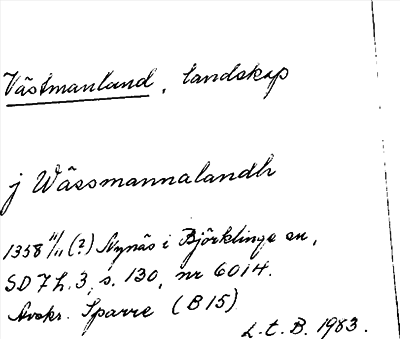 Västmanland, landskap
j Wässmannalandh
1358 11/11 (?) Nynäs i Björklinge sn,
SD 7 h. 3, s. 130, nr 6014.
Avskr. Sparre (B 15)
L.t.B. 1983.